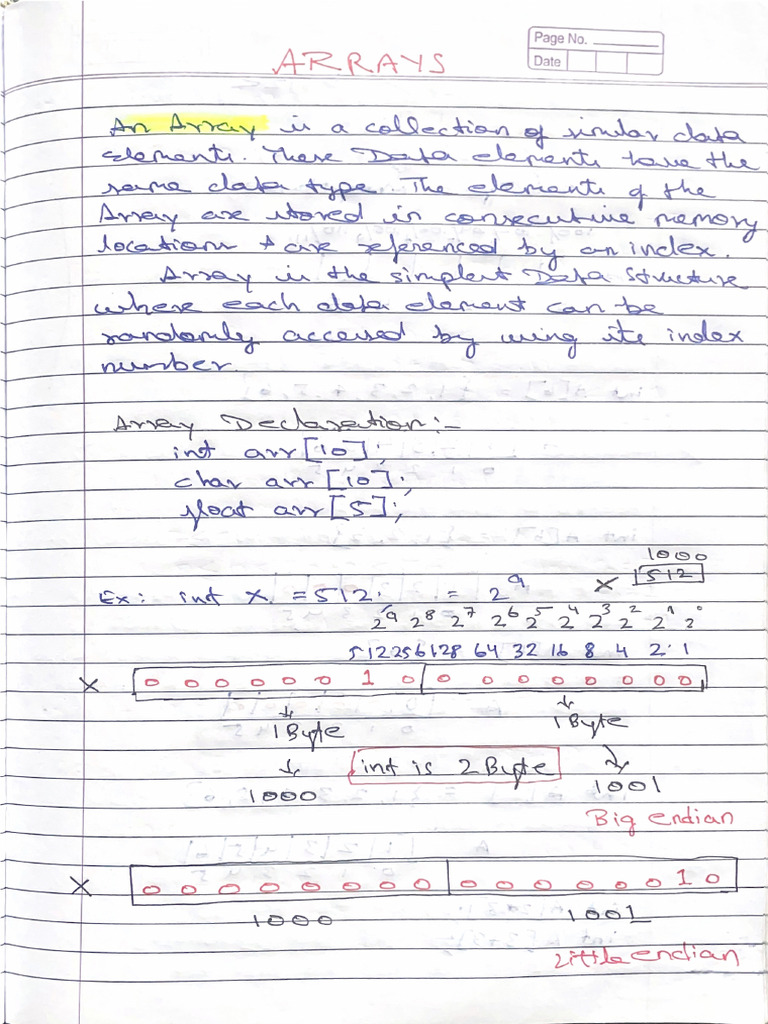 Page No.
Date
ARRAYS
An Array is a collection of similar data
elements. These Data elements have the
same data type. The elements of the
Array are stored in consecutive memory
locations & are referenced by an index.
Array is the simplest Data Structure
where each data element can be
randomly accessed by using its index
number.
Array Declaration:-
int arr[10];
char arr[10];
float arr[5];
1000
Ex: int x = 512. = 2⁹ x 512
2⁹ 2⁸ 2⁷ 2⁶ 2⁵ 2⁴ 2³ 2² 2¹ 2⁰
512 256 128 64 32 16 8 4 2 1
x 0 0 0 0 0 0 1 0 0 0 0 0 0 0 0 0
1 Byte 1 Byte
int is 2 Byte
1000 1001
Big endian
x 0 0 0 0 0 0 0 0 0 0 0 0 0 0 1 0
1000 1001
Little endian